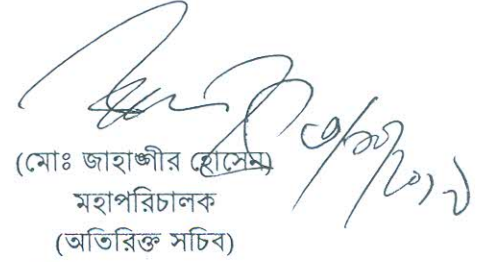 (মোঃ জাহাঙ্গীর হোসেন)
মহাপরিচালক
(অতিরিক্ত সচিব)